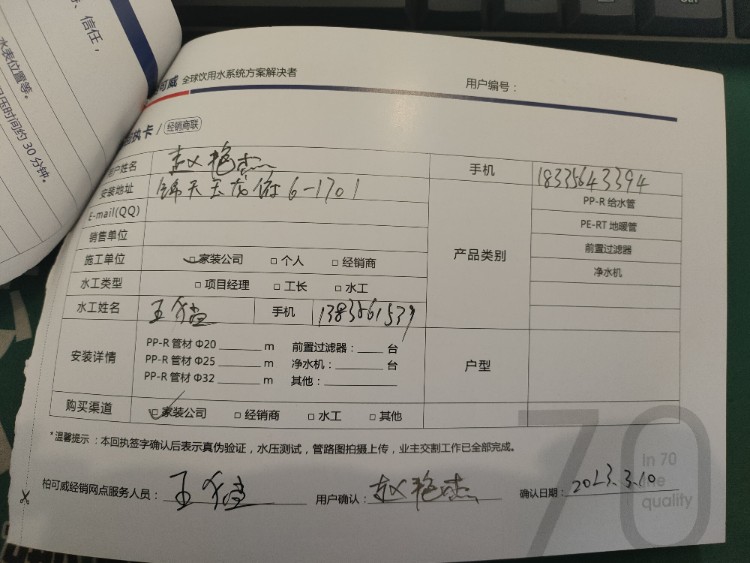 信任，
水表位置等。
压时间约 30 分钟。
可威 全球饮用水系统方案解决者
用户编号：
执卡 / 经销商联
用户姓名 赵艳杰 手机 18335643394
安装地址 锦天玉龙府 6-1701
E-mail(QQ)
销售单位
施工单位 □家装公司 □个人 □经销商
水工类型 □项目经理 □工长 □水工
水工姓名 王 手机 13835661539
产品类别
PP-R 给水管
PE-RT 地暖管
前置过滤器
净水机
安装详情
PP-R 管材 Φ20 ______ m 前置过滤器：____ 台
PP-R 管材 Φ25 ______ m 净水机：____ 台
PP-R 管材 Φ32 ______ m 其他：______
户型
购买渠道 ☑家装公司 □经销商 □水工 □其他
*温馨提示：本回执签字确认后表示真伪验证，水压测试，管路图拍摄上传，业主交割工作已全部完成。
柏可威经销网点服务人员：王 用户确认：赵艳杰 确认日期：2023.3.10
70
In 70
quality